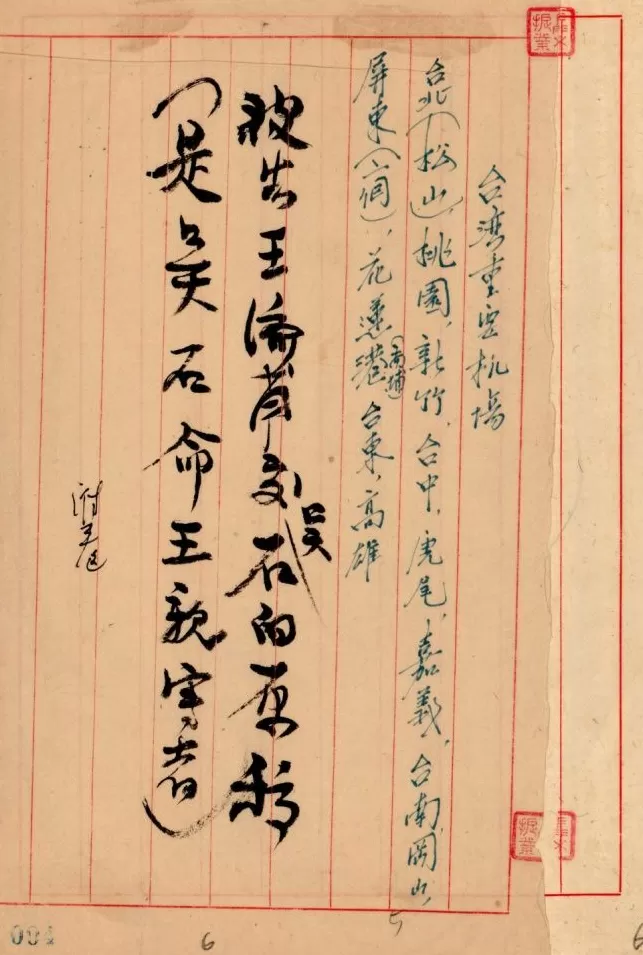 台湾重空机場
台北(松山),桃園,新竹,台中,虎尾,嘉義,台南岡山,
屏東(二個),花蓮港(南埔)台東,高雄
被告王濟甫交吳石的原稿
(是吳石命王親寫者)
6
5
6